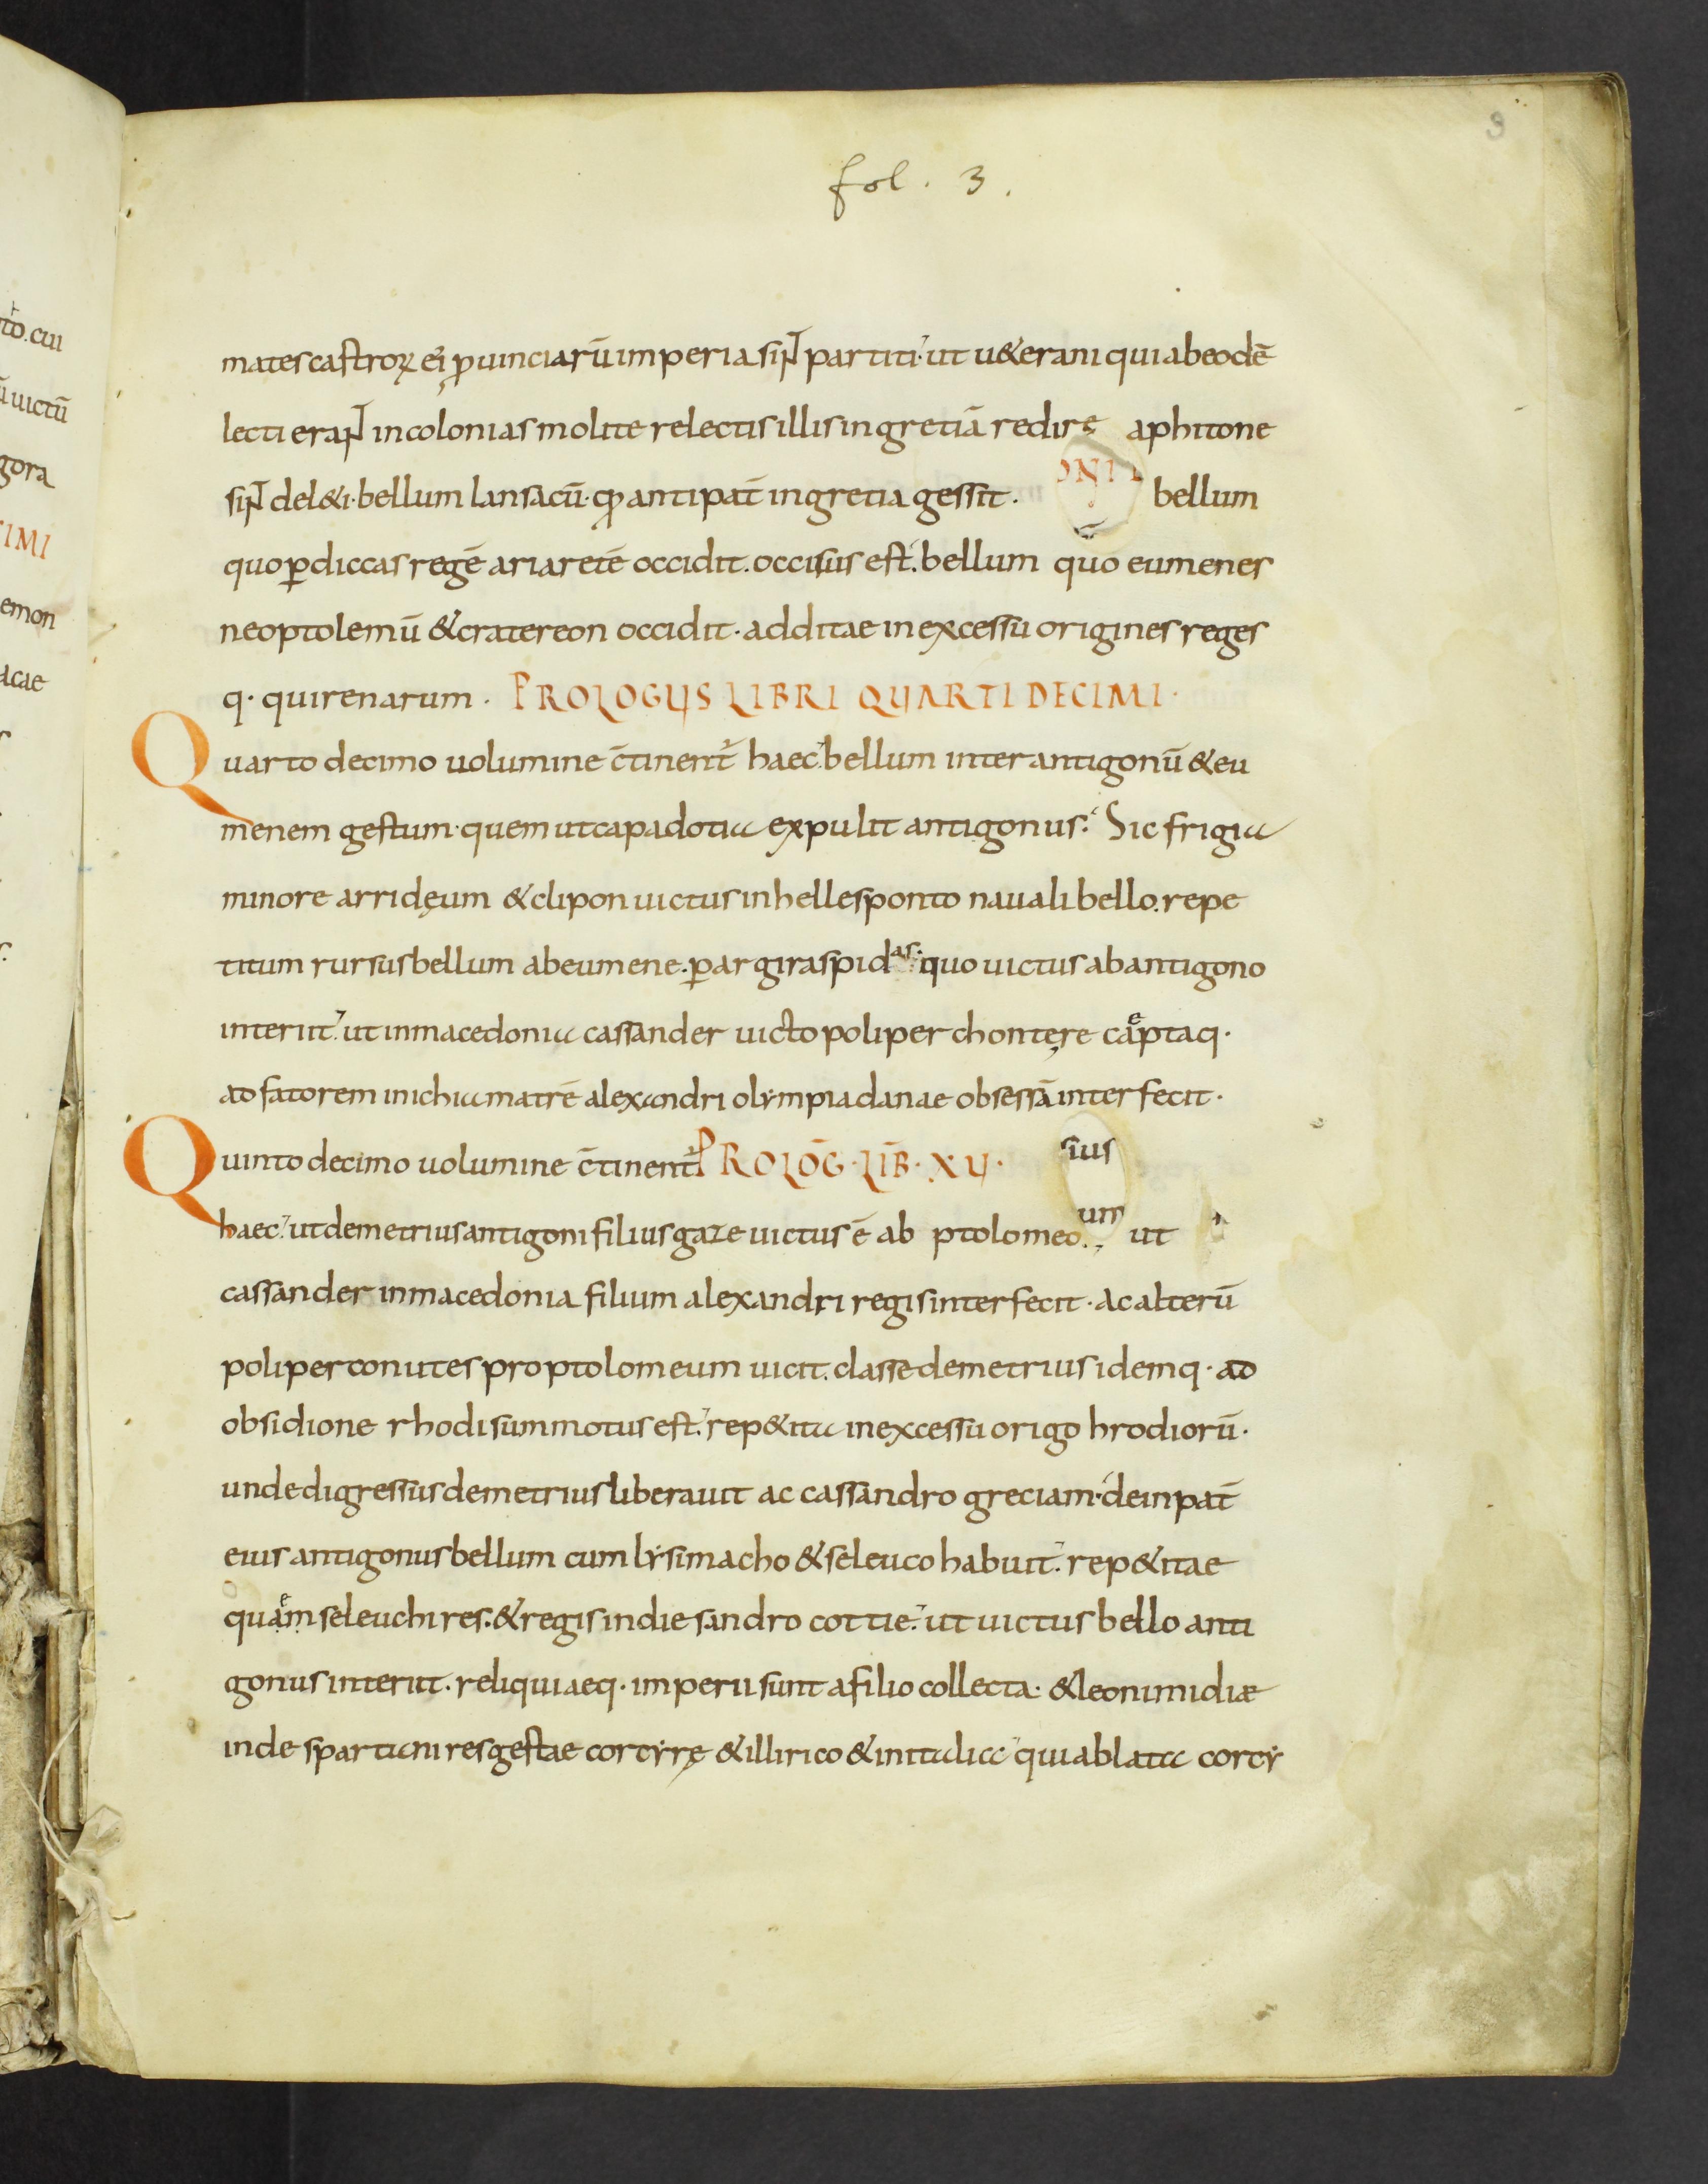 3
fol. 3.
to. cui
mates castroꝝ ei ꝓuinciarū imperia siɴᴛ partiti. ut u&erani qui ab eo dē
ū uictū
lecti eraɴᴛ in colonias molite relectis illis in gretiā redire a phitone
gora
siɴᴛ del&i. bellum lansacū. qđ antipat̄ in gretia gessit. ONI bellum
IMI
quo ꝑdiccas regē ariaretē occidit. occisus est. bellum quo eumenes
emon
neoptolemū & cratereon occidit. additae in excessu origines reges
acae
q. quirenarum. PROLOGUS LIBRI QUARTI DECIMI.
Quarto decimo uolumine c̄tinent̄ haec. bellum inter antigonū & eu
menem gestum. quem ut capadotia expulit antigonus. Sic frigia
minore arridęum & clipon uictus in hellesponto nauali bello. repe
titum rursus bellum ab eumene. ꝑ argiraspidas. quo uictus ab antigono
interiit. ut in macedonia cassander uicto poliperchontęre captaq.
ad fatorem inichia matrē alexandri olympiadanae obsessā interfecit.
Quinto decimo uolumine c̄tinent̄ PROLOḠ. LIB̄. XU. sius
haec. ut demetrius antigoni filius gaze uictus ē ab ptolomeo. um ut
cassander in macedonia filium alexandri regis interfecit. ac alterū
poliperconutes pro ptolomeum uicit. classe demetrius idemq. ad
obsidione rhodi summotus est. rep&ita in excessu origo hrodiorū.
unde digressus demetrius liberauit ac cassandro greciam. dein pat̄
eius antigonus bellum cum lysimacho & seleuco habuit. rep&itae
quaem seleuchi res. & regis indie sandro cottie. ut uictus bello anti
gonus interiit. reliquiaeq. imperii sunt a filio collecta. & leonimidiæ
inde spartani res gestae corcyrę & illirico & in italia. qui ablata corcy